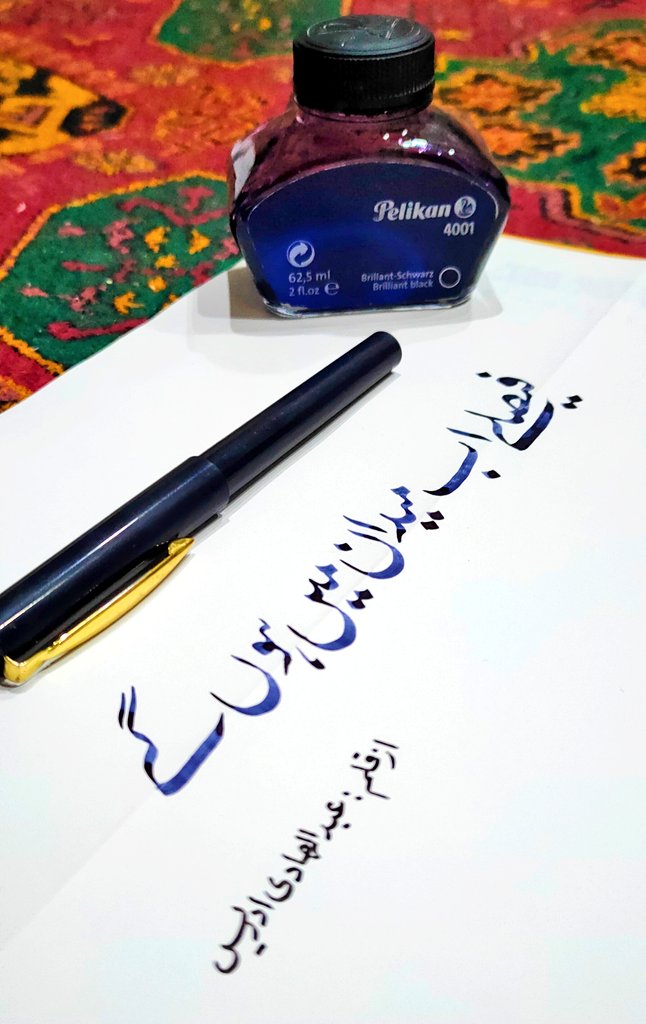 Pelikan
4001
62,5 ml
2 fl.oz e
Brillant-Schwarz
Brilliant black
فیصلے اب میدان میں ہوں گے
از قلم: عبد الھادی ادریس